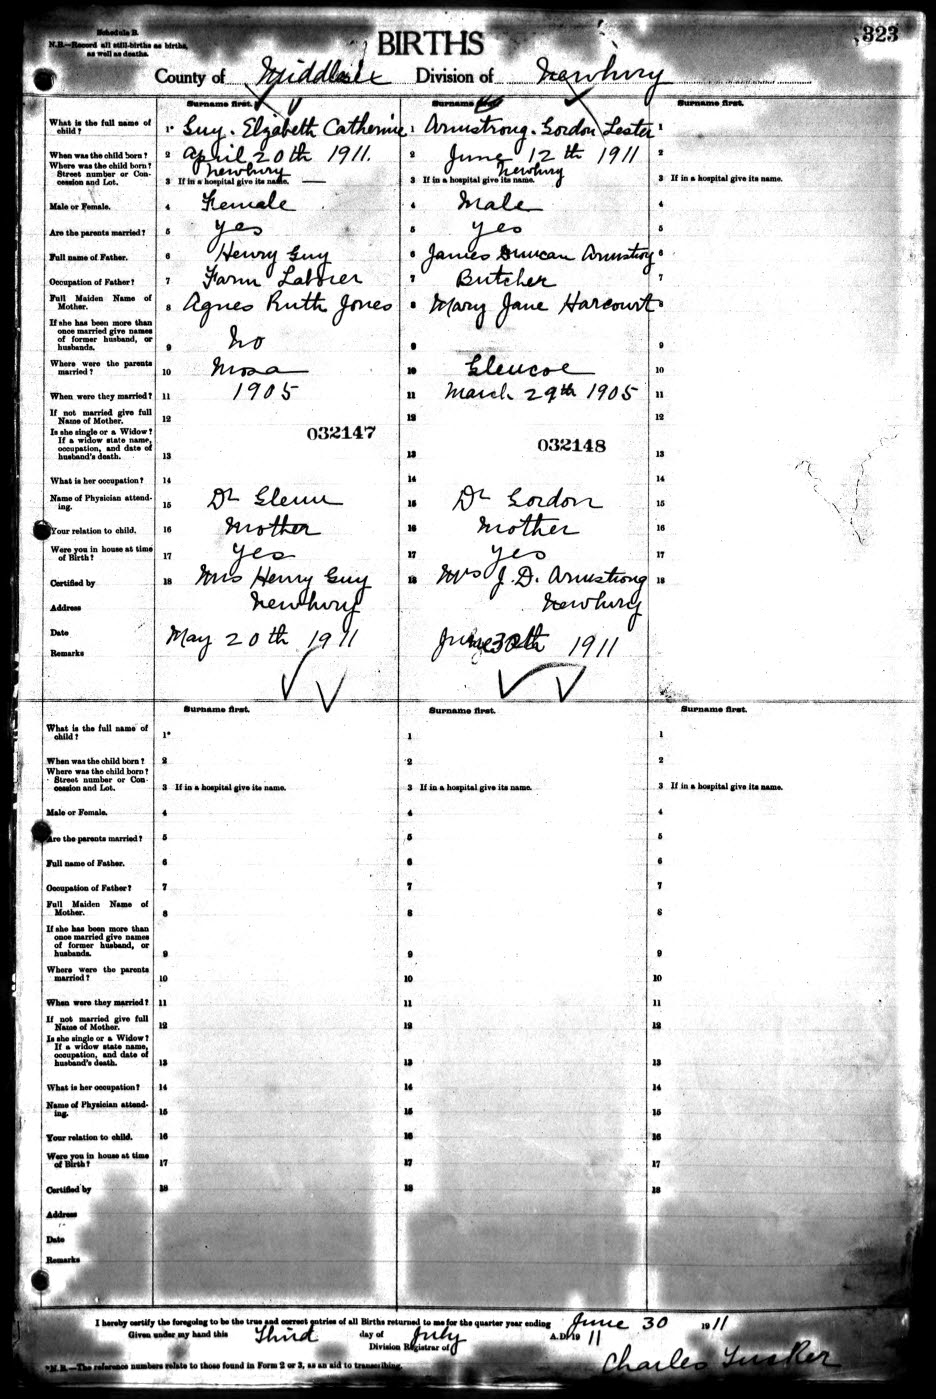 Schedule B.
N.B.—Record all still-births as births, as well as deaths.
323
BIRTHS
County of Middlesex Division of Newbury
Surname first. Surname first. Surname first.
What is the full name of child? 1* Guy. Elizabeth Catherine 1 Armstrong. Gordon Lester 1
When was the child born? 2 April 20th 1911. 2 June 12th 1911 2
Where was the child born? Street number or Concession and Lot. 3 If in a hospital give its name. Newbury — 3 If in a hospital give its name. Newbury 3 If in a hospital give its name.
Male or Female. 4 Female 4 Male 4
Are the parents married? 5 yes 5 yes 5
Full name of Father. 6 Henry Guy 6 James Duncan Armstrong 6
Occupation of Father? 7 Farm Laborer 7 Butcher 7
Full Maiden Name of Mother. 8 Agnes Ruth Jones 8 Mary Jane Harcourt 8
If she has been more than once married give names of former husband, or husbands. 9 No 9 9
Where were the parents married? 10 Mosa 10 Glencoe 10
When were they married? 11 1905 11 March 29th 1905 11
If not married give full Name of Mother. 12 12 12
Is she single or a Widow? If a widow state name, occupation, and date of husband's death. 13 032147 13 032148 13
What is her occupation? 14 14 14
Name of Physician attending. 15 Dr Glenn 15 Dr Gordon 15
Your relation to child. 16 Mother 16 Mother 16
Were you in house at time of Birth? 17 yes 17 yes 17
Certified by 18 Mrs Henry Guy 18 Mrs J. D. Armstrong 18
Address Newbury Newbury
Date May 20th 1911 June 30th 1911
Remarks
Surname first. Surname first. Surname first.
What is the full name of child? 1* 1 1
When was the child born? 2 2 2
Where was the child born? Street number or Concession and Lot. 3 If in a hospital give its name. 3 If in a hospital give its name. 3 If in a hospital give its name.
Male or Female. 4 4 4
Are the parents married? 5 5 5
Full name of Father. 6 6 6
Occupation of Father? 7 7 7
Full Maiden Name of Mother. 8 8 8
If she has been more than once married give names of former husband, or husbands. 9 9 9
Where were the parents married? 10 10 10
When were they married? 11 11 11
If not married give full Name of Mother. 12 12 12
Is she single or a Widow? If a widow state name, occupation, and date of husband's death. 13 13 13
What is her occupation? 14 14 14
Name of Physician attending. 15 15 15
Your relation to child. 16 16 16
Were you in house at time of Birth? 17 17 17
Certified by 18 18 18
Address
Date
Remarks
I hereby certify the foregoing to be the true and correct entries of all Births returned to me for the quarter year ending June 30 1911
Given under my hand this Third day of July A.D. 1911
Division Registrar of
Charles Tucker
*N.B.—The reference numbers relate to those found in Form 2 or 3, as an aid to transcribing.